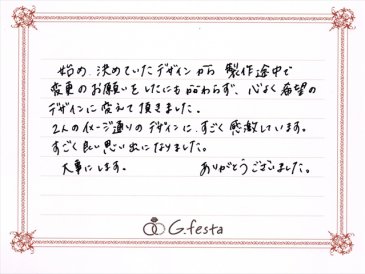 始め 決めていたデザインから 製作途中で
変更のお願いをしたにも関わらず、心よく希望の
デザインに変えて頂きました。
2人のイメージ通りのデザインに、すごく感激しています。
すごく良い思い出になりました。
大事にします。 ありがとうございました。
G.festa